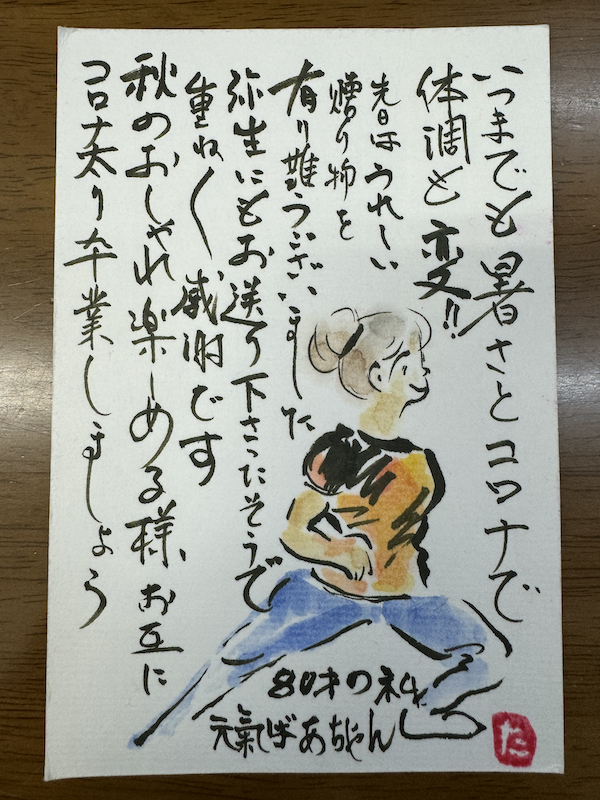 いつまでも暑さとコロナで
体調も変!!
先日はうれしい
贈り物を
有り難うございました
弥生にもお送り下さったそうで
重ねく感謝です
秋のおしゃれ楽しめる様、お互に
コロナ太り卒業しましょう
80才の私
元氣ばあちゃん
た